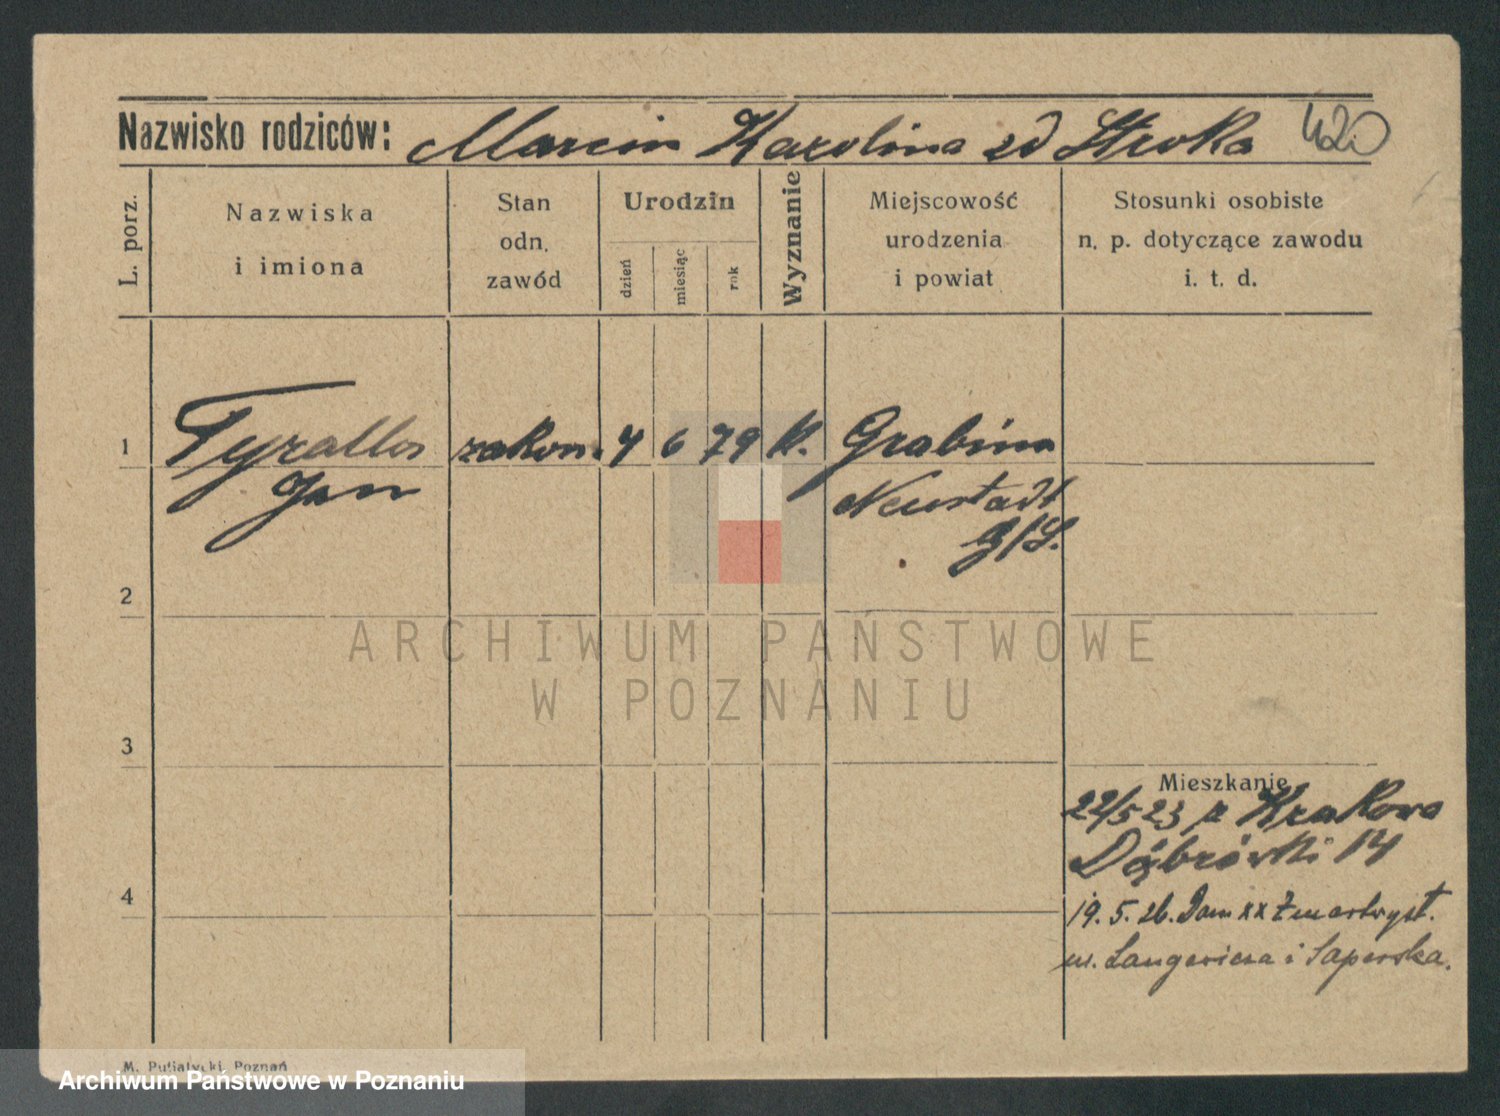 Nazwisko rodziców: Marcin Karolina zd Stroka 420
L. porz.
Nazwiska
i imiona
Stan
odn.
zawód
Urodzin
dzień
miesiąc
rok
Wyznanie
Miejscowość
urodzenia
i powiat
Stosunki osobiste
n. p. dotyczące zawodu
i. t. d.
1 Tyralla zakon. 4 6 79 kt. Grabina
Jan Neustadt
G/S.
2
ARCHIWUM PAŃSTWOWE
W POZNANIU
3
Mieszkanie
22/5 23 z Krakowa
Dąbrówki 14
4
19. 5. 26. Dom xx Zmartwyst.
ul. Langewicza i Saperska.
M. Putiatycki, Poznań
Archiwum Państwowe w Poznaniu